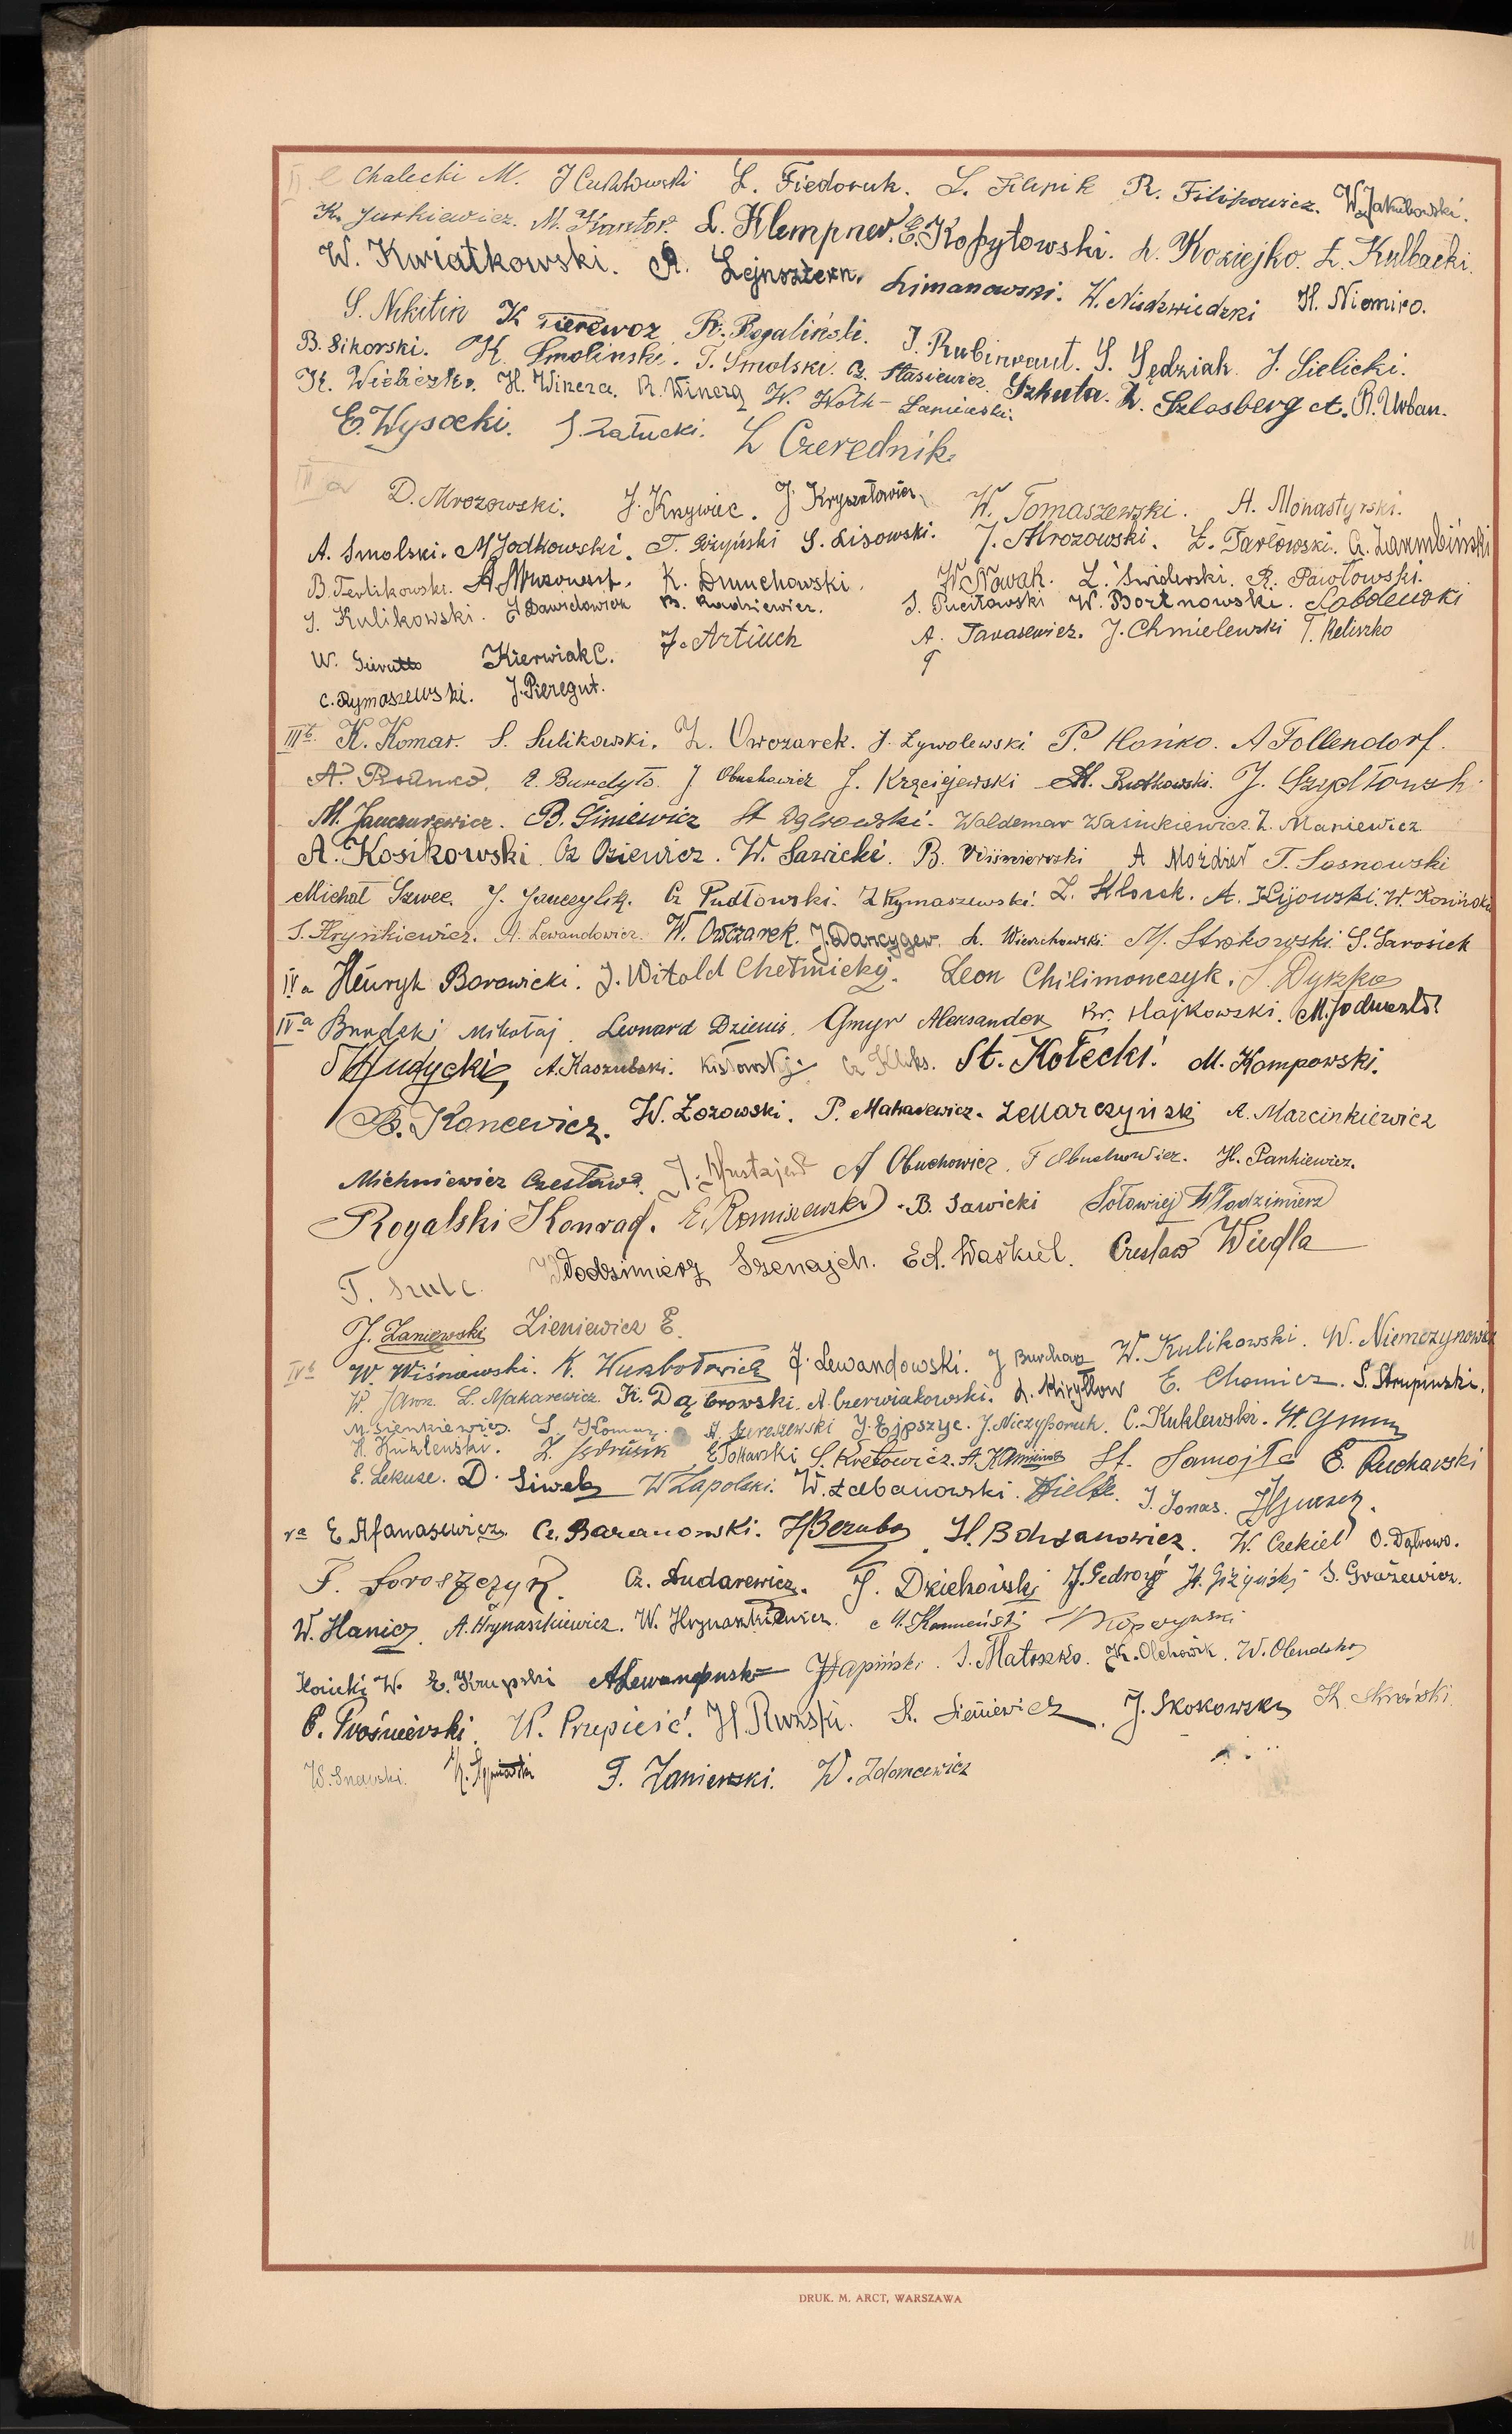 II e Chalecki M. L. Fiedoruk. R. Filipowicz. W. Jakubowski.
K. Jurkiewicz. M. Kantor. L. Klempner. E. Kopytowski. L. Koziejko. Z. Kulbacki.
W. Kwiatkowski. A. Lejnsztern. Limanowski. W. Niedzwiedzki H. Niemiro.
S. Nikitin K Pierewoz R. Rogaliński. J. Rubinraut. S. Sędziak. J. Sielicki.
B. Sikorski. K. Smolinski. T. Smolski. Cz. Stasiewicz. Szkuta. L. Szlosberg A. R. Urban.
K. Wieliczko. H. Winera. R. Winera W. Wołk-Łaniewski.
E. Wysocki. S. Załucki. L Czerednik.
III a D. Mrozowski. J. Krzywiec. J. Kryształowicz W. Tomaszewski. A. Monastyrski.
A. Smolski. M Jodkowski. T. Giżyński S. Lisowski. J. Mrozowski. Z. Tarłowski. G. Zarembiński
B. Terlikowski. K. Dmuchowski. W Nowak. L. Świderski. R. Pawłowski.
S. Kulikowski. J Dawidowicz B. Radziewicz. S. Puciłowski W. Bortnowski. Sobolewski
W. Kierwiak C. J. Artiuch A. Tarasewicz. J. Chmielewski T. Reliszko
C. Rymaszewski. J. Pieregut.
III b. K. Komar. S. Sulikowski. Z. Owczarek. J. Zywolewski P. Hońko. A Follendorf.
E. Burdyło. J Obuchowicz J. Krzciejewski M. Rutkowski. J. Szydłowski
M. Janczurewicz. B. Siniewicz St Dąbrowski. Waldemar Wasiukiewicz. Z. Maniewicz
A. Kosikowski. Cz Oziewicz. W. Sawicki. B. Wiśniewski A Możdżeń T. Sosnowski
Michał Szwec. J. Janczylik. Cz Pudłowski. Z Rymaszewski. Z. Klorek. A. Kijowski. W. Kosiński
S. Hryńkiewicz. A. Lewandowicz. W. Owczarek. J. Dancygier. L. Wierzchowski. M. Strokowski S. Sarosiek
IV a Henryk Borowicki. J. Witold Chetnicky. Leon Chilimonczyk. S. Dyszko
IV a Burdski Mikołaj. Leonard Dzienis. Gmyr Aleksander Kr. Hajkowski.
A. Kaszubski. Kisłowski Cz Kliks. St. Kołecki. M. Kompowski.
B. Koncewicz. W. Łozowski. P. Makarewicz. Z Marczyński A. Marcinkiewicz
Michniewicz Czesław. A Obuchowicz. F Obuchowicz. H. Pankiewicz.
Rogalski Konrad. E. Romiszewski. B. Sawicki Sołowiej Włodzimierz
T. Szulc. Włodzimierz Szenajch. Ed. Waśkiel. Czesław Wiedla
J. Zaniewski Zieniewicz E.
IV b W. Wiśniewski. K. Wurbołowicz J. Lewandowski. J Burchaz W. Kulikowski. W. Niemczynowicz
L. Makarewicz. K. Dąbrowski. A. Czerwiakowski. L. Kiryłłow E. Chomicz. S. Skrupinski.
M. Sienkiewicz. S. Komar. A. Sieraszewski J. Ejpszyc. J. Niczyporuk. C. Kuklewski.
H. Kuklewski. Z. Jedrusik E Tokarski S. Kretowicz. A. Kamiński St. Samojło E. Rucharski
E. Lekuse. D. Siwek W Zapolski. W. Łabanowski. Hielk. J. Jonas.
V a E Afanasewicz. Cz. Baranowski. H Bezubo. H. Bohdanowicz. W. Czekiel O. Dąbrowo.
F. Doroszczyk. Cz. Dudarewicz. J. Dziekoński J. Giedroyć H. Giżyński S. Grażewicz.
W. Hanicz. A. Hrynaszkiewicz. W. Hrynaszkiewicz. M. Kamieński
Konicki W. E. Krupski A Lewandowski J Łapiński. J. Matoszko. K. Olchowik. W. Olendzki
C. Prośniewski. W. Przepieść. H. Ruzski. K. Sieniewicz. J. Skokowski K. Skroński.
W. Snarski. F. Zaniewski. W. Zdancewicz
DRUK. M. ARCT, WARSZAWA